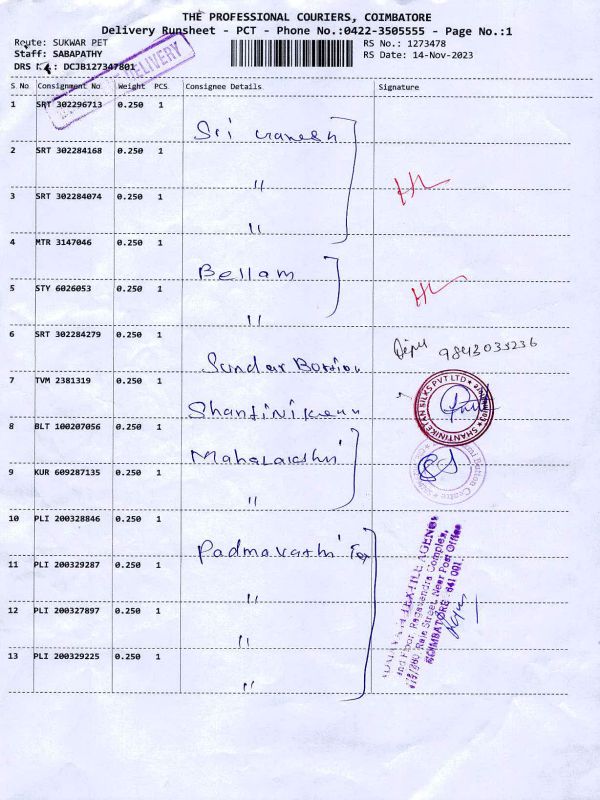 THE PROFESSIONAL COURIERS, COIMBATORE
Delivery Runsheet - PCT - Phone No.:0422-3505555 - Page No.:1
Route: SUKWAR PET
RS No.: 1273478
Staff: SABAPATHY
RS Date: 14-Nov-2023
DRS : DCJB127347801
DELIVERY
S.No Consignment No Weight PCS Consignee Details Signature
1 SRT 302296713 0.250 1
Sri Ganesh
2 SRT 302284168 0.250 1
"
3 SRT 302284074 0.250 1
"
4 MTR 3147046 0.250 1
Bellam
5 STY 6026053 0.250 1
"
6 SRT 302284279 0.250 1
Sundar 9843033236
7 TVM 2381319 0.250 1
SHANTINIKETAN SILKS PVT LTD
8 BLT 100207056 0.250 1
Mahalakshmi
9 KUR 609287135 0.250 1
"
10 PLI 200328846 0.250 1
Padmavathi Tex
11 PLI 200329287 0.250 1
"
12 PLI 200327897 0.250 1
"
13 PLI 200329225 0.250 1
"
TEXTILE AGENCY
2nd Floor, Ragavendra Complex,
Raje Street, Near Post Office
COIMBATORE - 641 001.